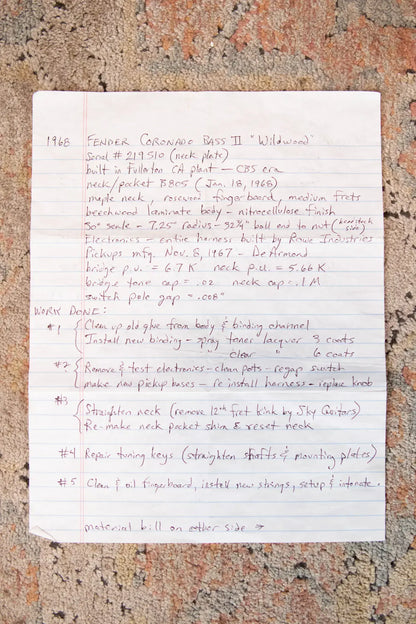 1968 FENDER CORONADO BASS II "Wildwood"
Serial # 219510 (neck plate)
built in Fullerton CA plant — CBS era
neck/pocket B805 (Jan. 18, 1968)
maple neck, rosewood fingerboard, medium frets
beechwood laminate body - nitrocellulose finish
30" scale - 7.25" radius - 32¼" ball end to nut (headstock side)
Electronics - entire harness built by Rowe Industries
Pickups mfg. Nov. 8, 1967 - DeArmond
bridge p.u. = 6.7 K neck p.u. = 5.66 K
bridge tone cap = .02 neck cap = .1 M
switch pole gap = .008"
WORK DONE:
#1 Clean up old glue from body & binding channel
Install new binding - spray toner lacquer 3 coats
" clear " 6 coats
#2 Remove & test electronics - clean pots - regap switch
make new pickup bases - reinstall harness - replace knob
#3 Straighten neck (remove 12th fret kink by Sky Guitars)
Re-make neck pocket shim & reset neck
#4 Repair tuning keys (straighten shafts & mounting plates)
#5 Clean & oil fingerboard, install new strings, setup & intonate.
material bill on other side →